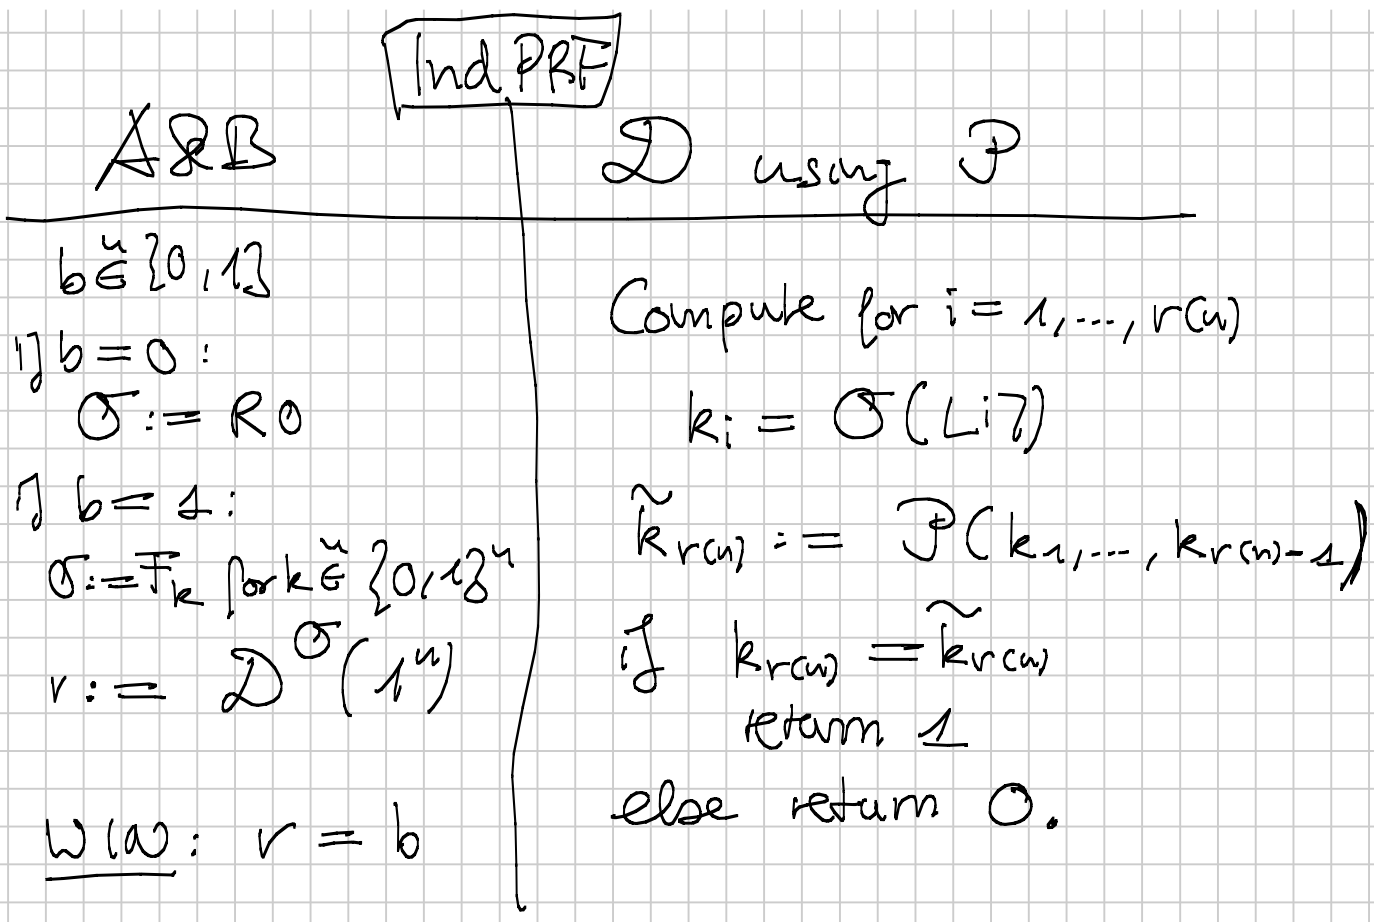 Ind PRF
A&B
𝒟 using 𝒫
b ∈ᵘ {0,1}
if b = 0 :
𝒪 := RO
if b = 1 :
𝒪 := Fₖ for k ∈ᵘ {0,1}ⁿ
r := 𝒟^𝒪 (1ⁿ)
WIN : r = b
Compute for i = 1, ..., r(n)
k_i = 𝒪(⌊i⌉)
k̃_r(n) := 𝒫(k_1, ..., k_r(n)-1)
if k_r(n) = k̃_r(n)
return 1
else return 0.